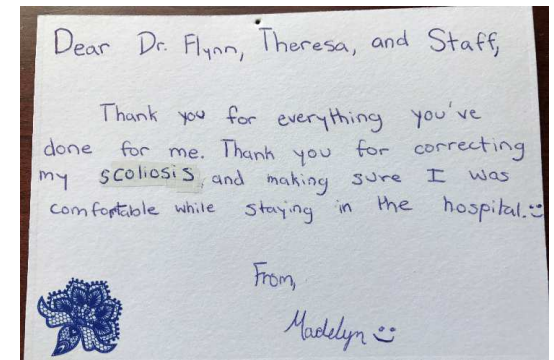 Dear Dr. Flynn, Theresa, and Staff,
Thank you for everything you've
done for me. Thank you for correcting
my scoliosis, and making sure I was
comfortable while staying in the hospital.:)
From,
Madelyn :)